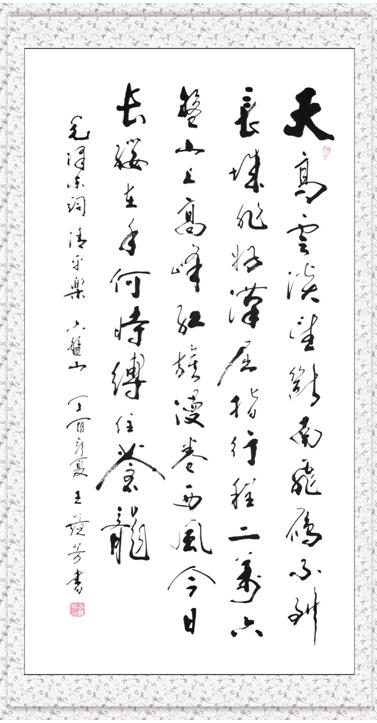 天高雲淡望斷南飛雁不到
長城非好漢屈指行程二萬六
盤山上高峰紅旗漫卷西風今日
长纓在手何時縛住蒼龍
毛澤東詞 清平樂 六盤山 丁酉夏 王芳書